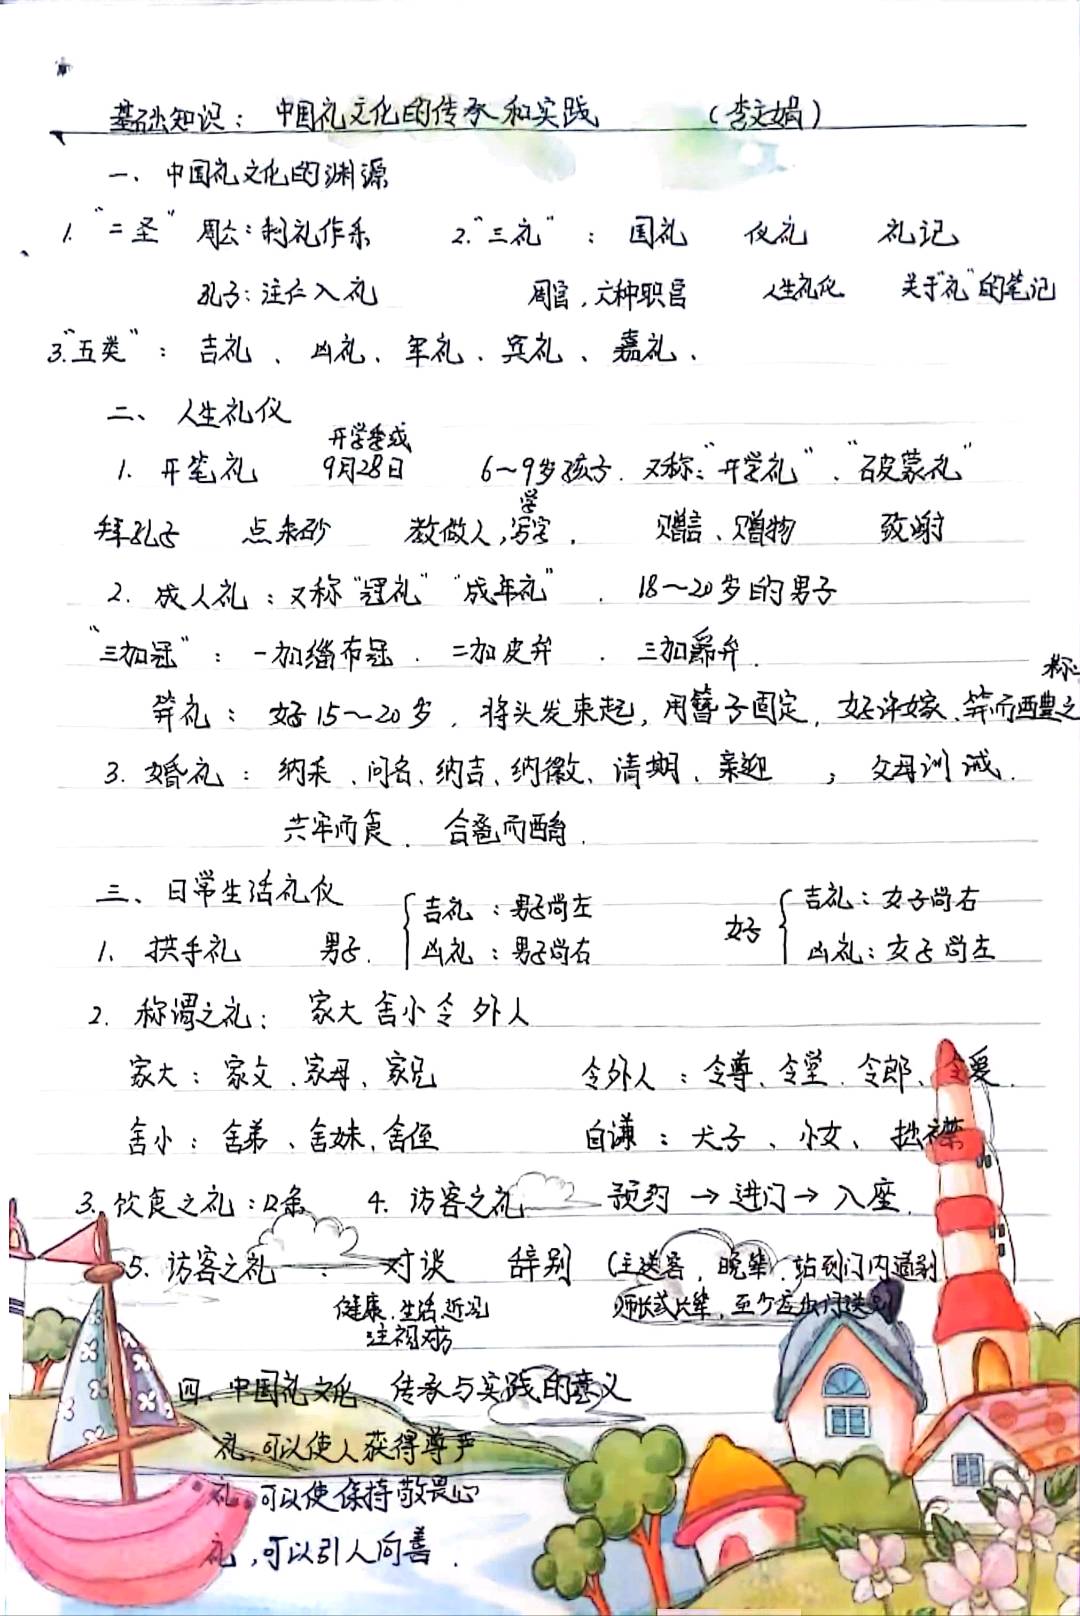 基础知识：中国礼文化的传承和实践 （李文娟）
一、中国礼文化的渊源
1. “二圣” 周公：制礼作乐 2.“三礼”： 国礼 仪礼 礼记
孔子：注仁入礼 周官，六种职官 人生礼仪 关于“礼”的笔记
3.“五类”： 吉礼、凶礼、军礼、宾礼、嘉礼、
二、人生礼仪
开学季或
1. 开笔礼 9月28日 6～9岁孩子. 又称：“开学礼”、“破蒙礼”
学
拜孔子 点朱砂 教做人，写字. 赠言、赠物 致谢
2. 成人礼：又称“冠礼”“成年礼”. 18～20岁的男子
“三加冠”：一加缁布冠. 二加皮弁. 三加爵弁.
笄礼：女子15～20岁，将头发束起，用簪子固定，女子许嫁、笄而醴之
3. 婚礼：纳采、问名、纳吉、纳徵、请期、亲迎 ；父母训诫.
共牢而食. 合卺而酳.
三、日常生活礼仪
吉礼：男子尚左 吉礼：女子尚右
1、拱手礼 男子. 女子
凶礼：男子尚右 凶礼：女子尚左
2. 称谓之礼： 家大 舍小 令外人
家大：家父、家母、家兄 令外人：令尊、令堂、令郎、令爱.
舍小：舍弟、舍妹、舍侄 自谦：犬子、小女、拙荆
3. 饮食之礼：12条 4. 访客之礼 预约→进门→入座.
5. 访客之礼： 对谈 辞别 （主送客，晚辈，站到门内道别.
健康.生活近况 师长或长辈，至少应出门送别
注视对方
四、中国礼文化 传承与实践的意义
礼，可以使人获得尊严
礼，可以使保持敬畏心
礼，可以引人向善.